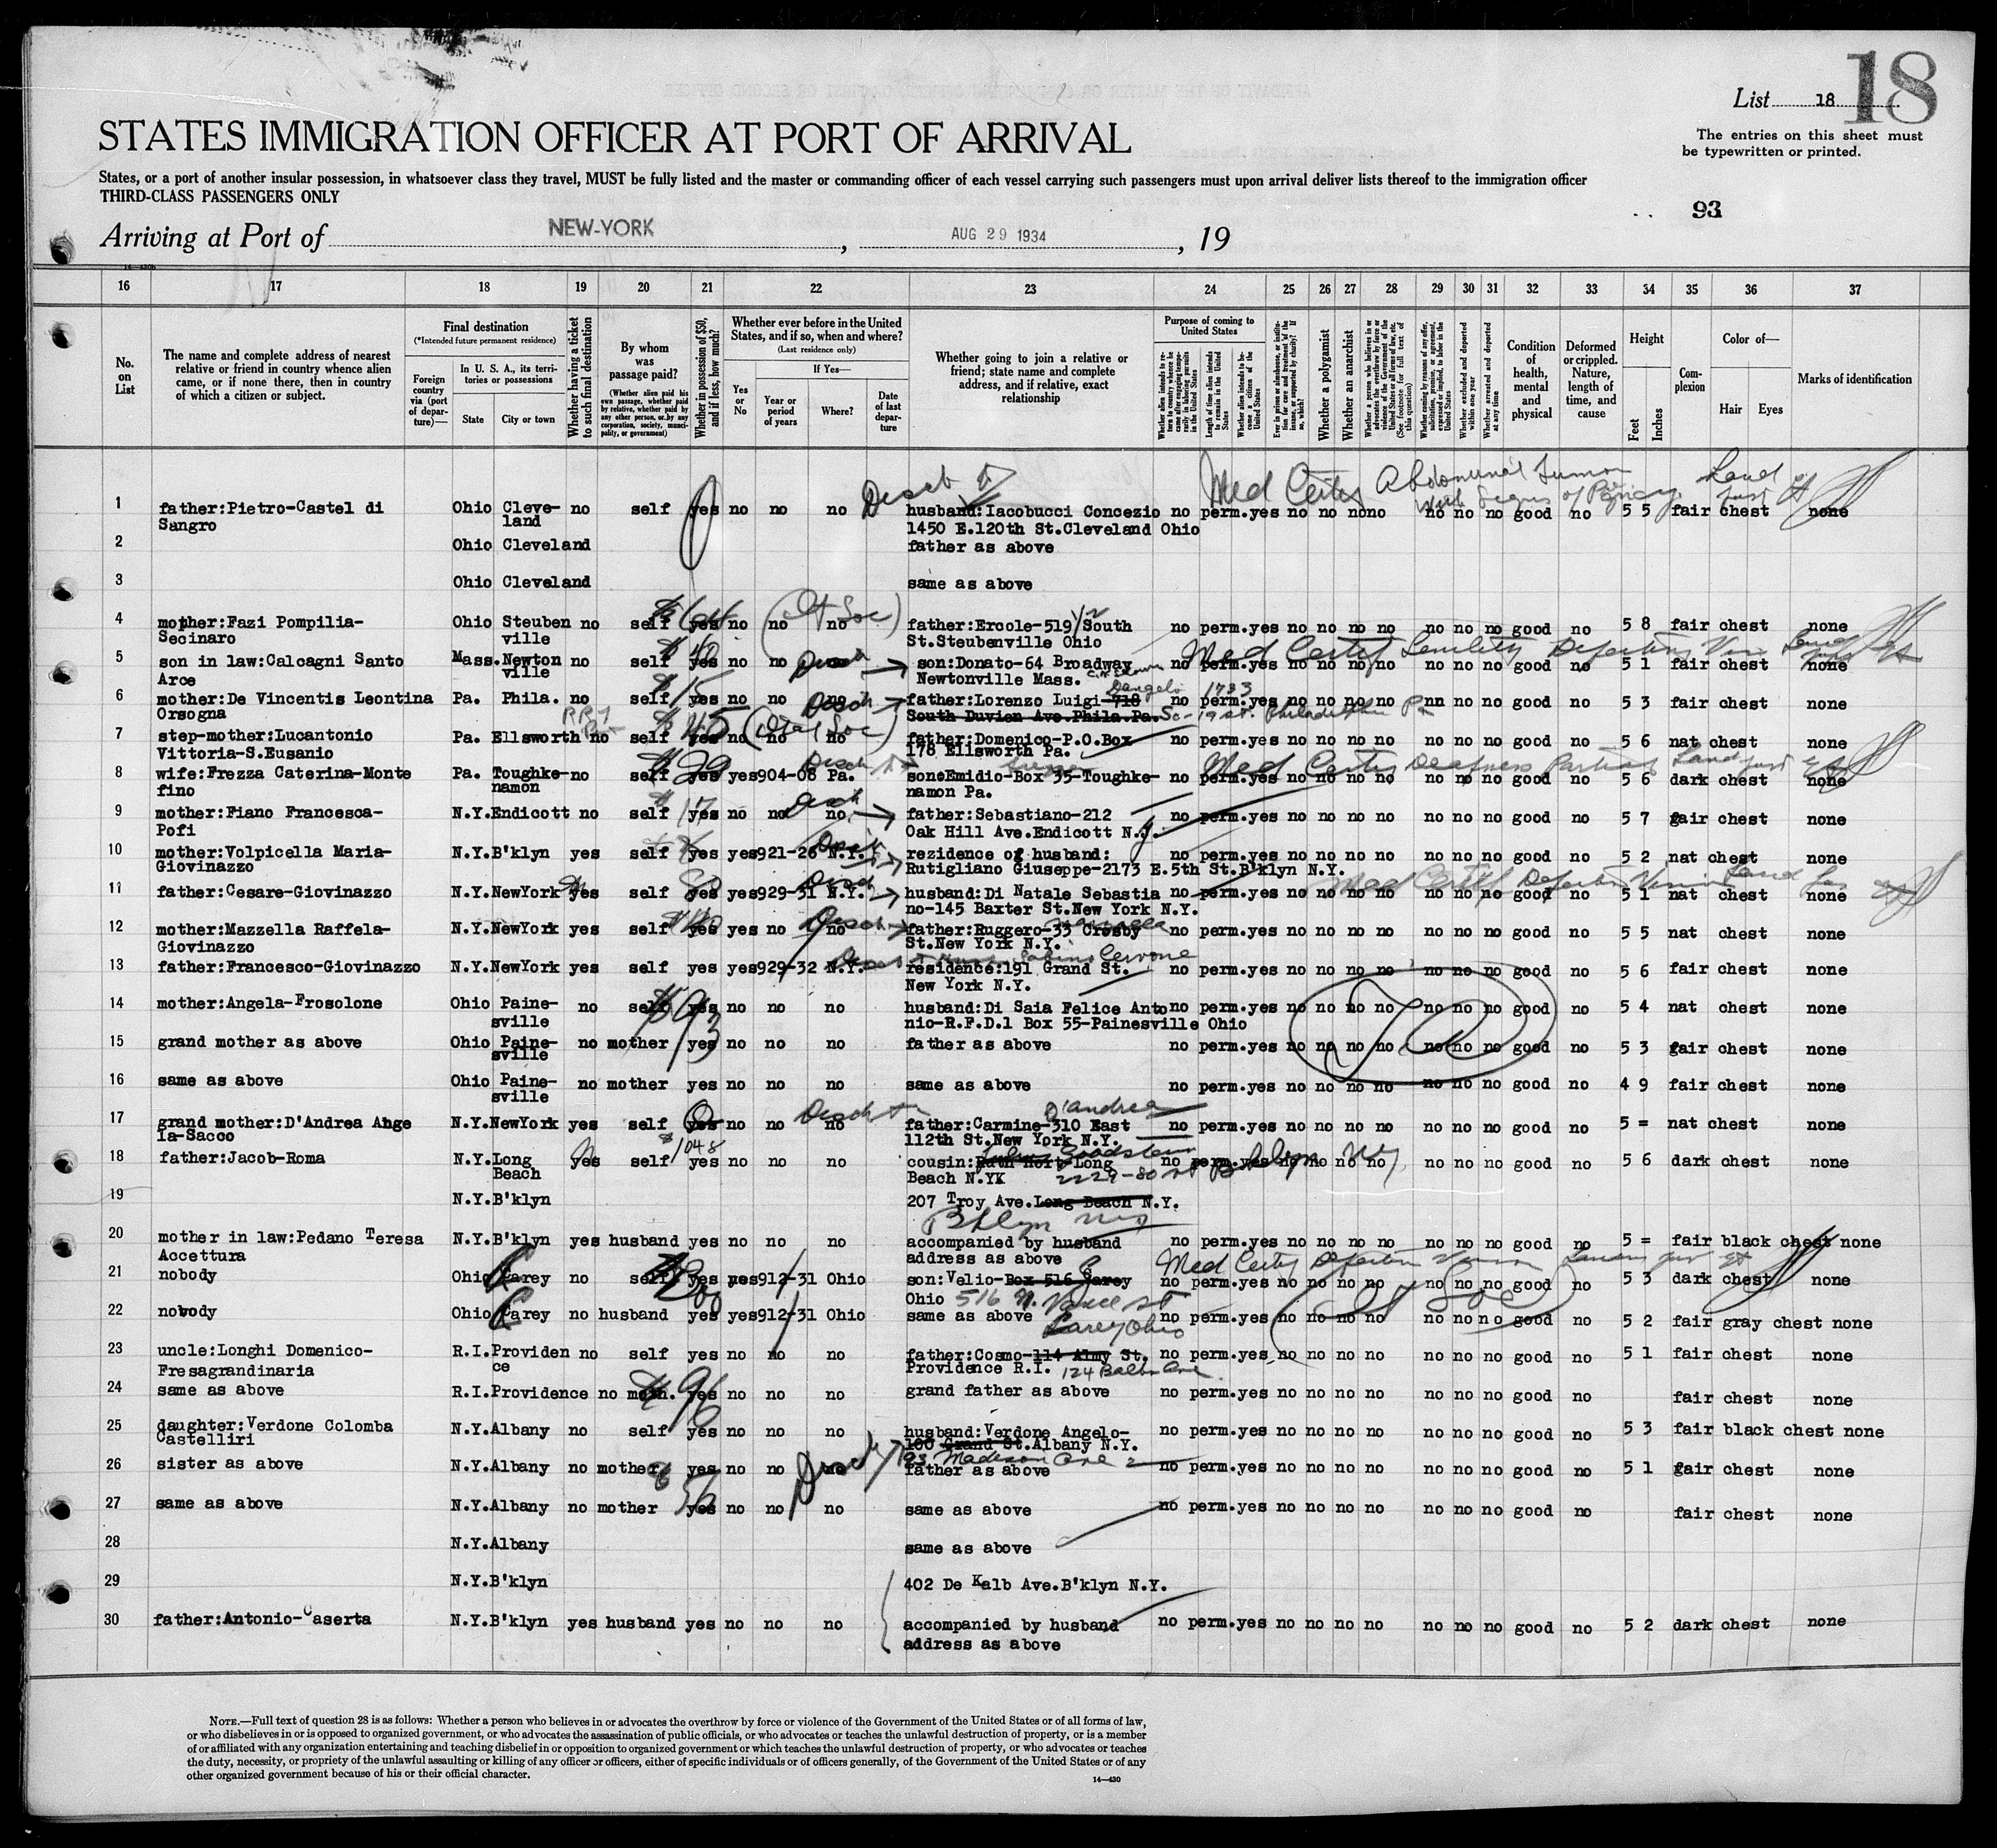 List 18
18
STATES IMMIGRATION OFFICER AT PORT OF ARRIVAL
The entries on this sheet must
be typewritten or printed.
States, or a port of another insular possession, in whatsoever class they travel, MUST be fully listed and the master or commanding officer of each vessel carrying such passengers must upon arrival deliver lists thereof to the immigration officer
THIRD-CLASS PASSENGERS ONLY
93
Arriving at Port of NEW-YORK, AUG 29 1934, 19
16 17 18 19 20 21 22 23 24 25 26 27 28 29 30 31 32 33 34 35 36 37
No. on List
The name and complete address of nearest relative or friend in country whence alien came, or if none there, then in country of which a citizen or subject.
Final destination
(*Intended future permanent residence)
Foreign country via (port of departure)—
In U. S. A., its territories or possessions
State
City or town
Whether having a ticket to such final destination
By whom was passage paid?
(Whether alien paid his own passage, whether paid by relative, whether paid by any other person, or by any corporation, society, municipality, or government)
Whether in possession of $50, and if less, how much?
Whether ever before in the United States, and if so, when and where?
(Last residence only)
Yes or No
If Yes—
Year or period of years
Where?
Date of last departure
Whether going to join a relative or friend; state name and complete address, and if relative, exact relationship
Purpose of coming to United States
Whether alien intends to return to country whence he came after engaging temporarily in laboring pursuits in the United States
Length of time alien intends to remain in the United States
Whether alien intends to become a citizen of the United States
Ever in prison or almshouse, or institution for care and treatment of the insane, or supported by charity? If so, which?
Whether a polygamist
Whether an anarchist
Whether a person who believes in or advocates the overthrow by force or violence of the Government of the United States or all forms of law, etc. (See footnote for full text of this question)
Whether coming by reasons of any offer, solicitation, promise, or agreement, expressed or implied, to labor in the United States
Whether excluded and deported within one year
Whether arrested and deported at any time
Condition of health, mental and physical
Deformed or crippled. Nature, length of time, and cause
Height
Feet
Inches
Complexion
Color of—
Hair
Eyes
Marks of identification
Med Certif Abdominal Tumor
with Signs of Pregnancy
1 father:Pietro-Castel di Ohio Cleve- no self yes no no no husband:Iacobucci Concezio no perm.yes no no no no no no no good no 5 5 fair chest none
Sangro land 1450 E.120th St.Cleveland Ohio
2 Ohio Cleveland father as above
3 Ohio Cleveland same as above
4 mother:Fazi Pompilia- Ohio Steuben no self yes no no no father:Ercole-519 South no perm.yes no no no no no no no good no 5 8 fair chest none
Secinaro ville St.Steubenville Ohio
5 son in law:Calcagni Santo Mass.Newton no self yes no no no son:Donato-64 Broadway no perm.yes no no no no no no no good no 5 1 fair chest none
Arce ville Newtonville Mass.
Med Certif Senility Defective Vision
6 mother:De Vincentis Leontina Pa. Phila. no self yes no no no father:Lorenzo Luigi-718 no perm.yes no no no no no no no good no 5 3 fair chest none
Orsogna South Duvien Ave.Phila.Pa. Dangelo 1733 So-19 St. Philadelphia Pa
7 step-mother:Lucantonio Pa. Ellsworth no self yes no no no father:Domenico-P.O.Box no perm.yes no no no no no no no good no 5 6 nat chest none
Vittoria-S.Eusanio 178 Ellsworth Pa.
Med Certif Deafness Partial
8 wife:Frezza Caterina-Monte Pa. Toughke- no self yes yes904-08 Pa. son:Emidio-Box 35-Toughke- no perm.yes no no no no no no no good no 5 6 dark chest none
fino namon namon Pa.
9 mother:Fiano Francesca- N.Y.Endicott no self yes no no no father:Sebastiano-212 no perm.yes no no no no no no no good no 5 7 fair chest none
Pofi Oak Hill Ave.Endicott N.Y.
10 mother:Volpicella Maria- N.Y.B'klyn yes self yes yes921-26 N.Y. rezidence of husband: no perm.yes no no no no no no no good no 5 2 nat chest none
Giovinazzo Rutigliano Giuseppe-2173 E.5th St.B'klyn N.Y.
Med Certif Defective Vision
11 father:Cesare-Giovinazzo N.Y.NewYork yes self yes yes929-31 N.Y. husband:Di Natale Sebastia no perm.yes no no no no no no no good no 5 1 nat chest none
no-145 Baxter St.New York N.Y.
12 mother:Mazzella Raffela- N.Y.NewYork yes self yes yes no no father:Ruggero-33 Crosby no perm.yes no no no no no no no good no 5 5 nat chest none
Giovinazzo St.New York N.Y.
13 father:Francesco-Giovinazzo N.Y.NewYork yes self yes yes929-32 N.Y. residence:191 Grand St. no perm.yes no no no no no no no good no 5 6 fair chest none
New York N.Y.
14 mother:Angela-Frosolone Ohio Paine- no self yes no no no husband:Di Saia Felice Anto no perm.yes no no no no no no no good no 5 4 nat chest none
sville nio-R.F.D.1 Box 55-Painesville Ohio
15 grand mother as above Ohio Paine- no mother yes no no no father as above no perm.yes no no no no no no no good no 5 3 fair chest none
sville
16 same as above Ohio Paine- no mother yes no no no same as above no perm.yes no no no no no no no good no 4 9 fair chest none
sville
D'andrea
17 grand mother:D'Andrea Ange N.Y.NewYork yes self yes no no no father:Carmine-310 East no perm.yes no no no no no no no good no 5 = nat chest none
la-Sacco 112th St.New York N.Y.
18 father:Jacob-Roma N.Y.Long yes self $1048 yes no no no cousin: Long no perm.yes no no no no no no no good no 5 6 dark chest none
Beach Beach N.YK 2229-80 St Bklyn NY
19 N.Y.B'klyn 207 Troy Ave.Long Beach N.Y.
Bklyn NY
20 mother in law:Pedano Teresa N.Y.B'klyn yes husband yes no no no accompanied by husband no perm.yes no no no no no no no good no 5 = fair black chest none
Accettura address as above
Med Certif Defective Vision
21 nobody Ohio Carey no self yes yes912-31 Ohio son:Velio-Box 516 Carey no perm.yes no no no no no no no good no 5 3 dark chest none
Ohio 516 N. Vance St
22 nobody Ohio Carey no husband yes yes912-31 Ohio same as above no perm.yes no no no no no no no good no 5 2 fair gray chest none
Carey Ohio
23 uncle:Longhi Domenico- R.I.Providen no self yes no no no father:Cosmo-114 Almy St. no perm.yes no no no no no no no good no 5 1 fair chest none
Fresagrandinaria ce Providence R.I. 124
24 same as above R.I.Providence no moth. yes no no no grand father as above no perm.yes no no no no no no no good no fair chest none
25 daughter:Verdone Colomba N.Y.Albany no self yes no no no husband:Verdone Angelo- no perm.yes no no no no no no no good no 5 3 fair black chest none
Castelliri 100 Grand St.Albany N.Y.
93 Madison Ave
26 sister as above N.Y.Albany no mother yes no no no father as above no perm.yes no no no no no no no good no 5 1 fair chest none
27 same as above N.Y.Albany no mother yes no no no same as above no perm.yes no no no no no no no good no fair chest none
28 N.Y.Albany same as above
29 N.Y.B'klyn 402 De Kalb Ave.B'klyn N.Y.
30 father:Antonio-Caserta N.Y.B'klyn yes husband yes no no no accompanied by husband no perm.yes no no no no no no no good no 5 2 dark chest none
address as above
NOTE.—Full text of question 28 is as follows: Whether a person who believes in or advocates the overthrow by force or violence of the Government of the United States or of all forms of law,
or who disbelieves in or is opposed to organized government, or who advocates the assassination of public officials, or who advocates or teaches the unlawful destruction of property, or is a member
of or affiliated with any organization entertaining and teaching disbelief in or opposition to organized government or which teaches the unlawful destruction of property, or who advocates or teaches
the duty, necessity, or propriety of the unlawful assaulting or killing of any officer or officers, either of specific individuals or of officers generally, of the Government of the United States or of any
other organized government because of his or their official character.
14—430